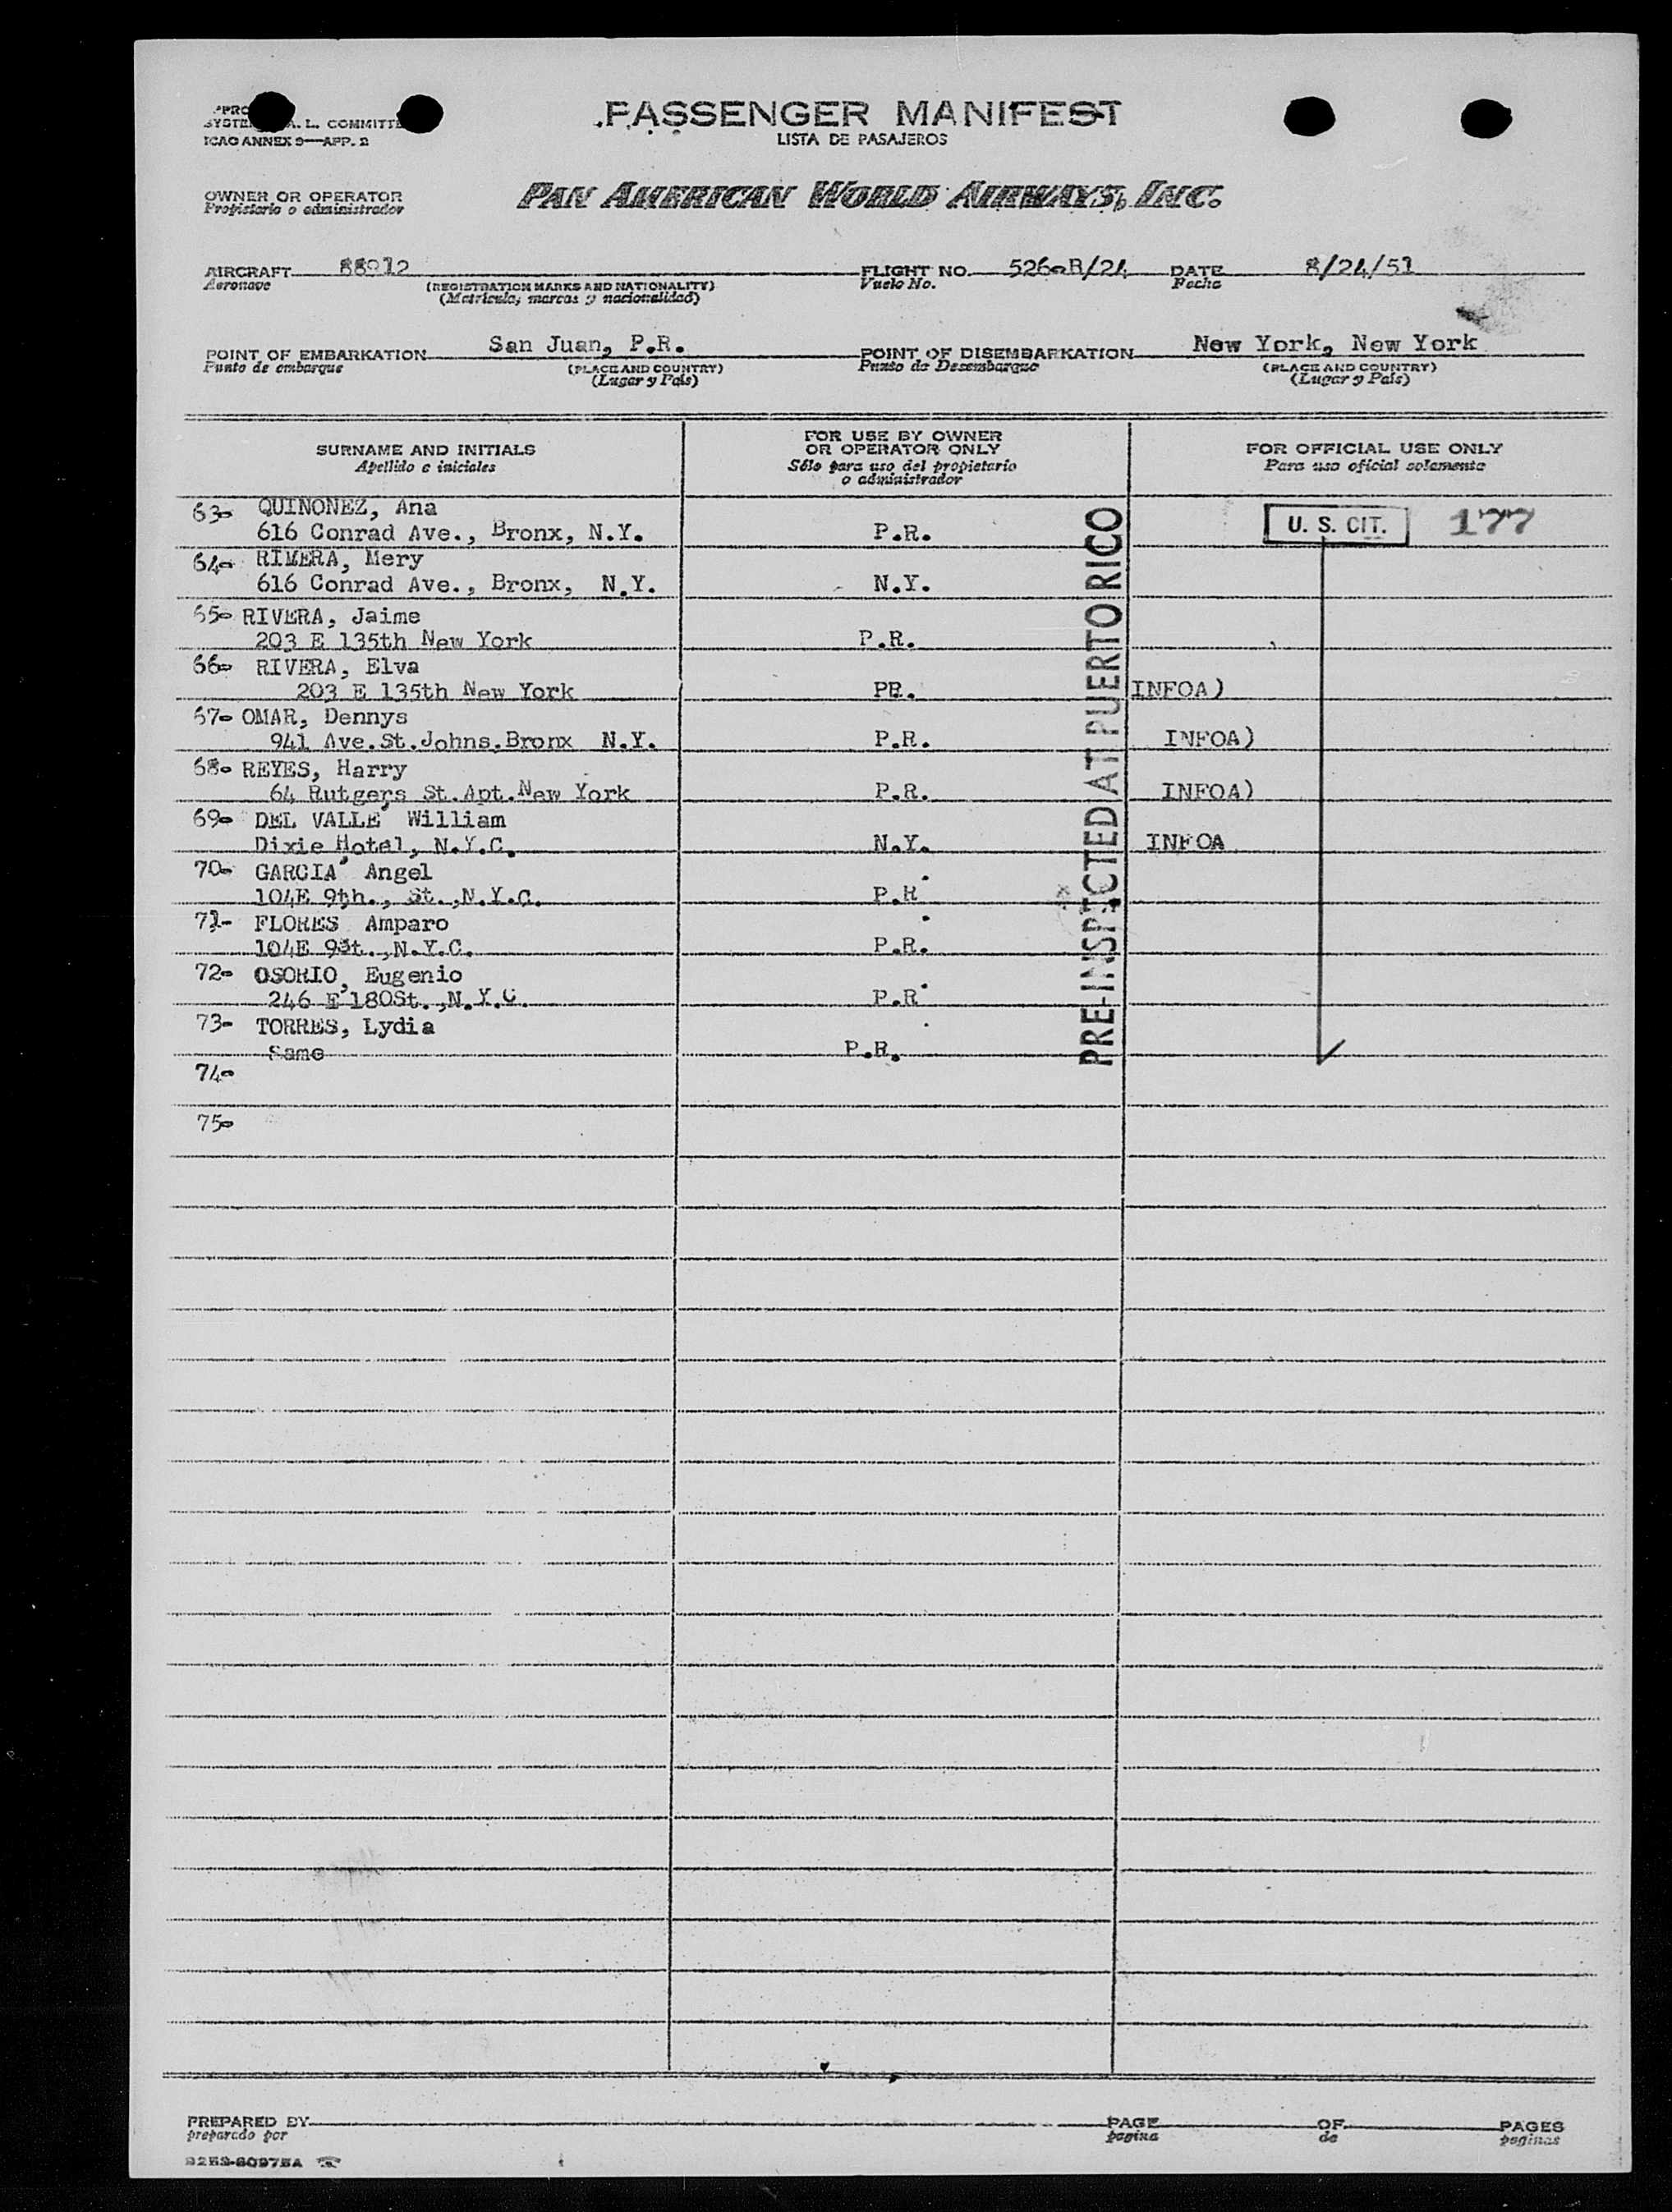 PASSENGER MANIFEST
LISTA DE PASAJEROS
A. L. COMMITTE
ICAO ANNEX 9—APP. 2
OWNER OR OPERATOR
Propietario o administrador
PAN AMERICAN WORLD AIRWAYS, INC.
AIRCRAFT 88912 FLIGHT NO. 526-B/24 DATE 8/24/51
Aeronave (REGISTRATION MARKS AND NATIONALITY) Vuelo No. Fecha
(Matricula, marcas y nacionalidad)
POINT OF EMBARKATION San Juan, P.R. POINT OF DISEMBARKATION New York, New York
Punto de embarque (PLACE AND COUNTRY) Punto de Desembarque (PLACE AND COUNTRY)
(Lugar y País) (Lugar y País)
SURNAME AND INITIALS
Apellido e iniciales
FOR USE BY OWNER
OR OPERATOR ONLY
Sólo para uso del propietario
o administrador
FOR OFFICIAL USE ONLY
Para uso oficial solamente
63- QUINONEZ, Ana
616 Conrad Ave., Bronx, N.Y. P.R. U. S. CIT. 177
64- RIVERA, Mery
616 Conrad Ave., Bronx, N.Y. N.Y.
65- RIVERA, Jaime
203 E 135th New York P.R.
66- RIVERA, Elva
203 E 135th New York PR. INFOA)
67- OMAR, Dennys
941 Ave.St.Johns.Bronx N.Y. P.R. INFOA)
68- REYES, Harry
64 Rutgers St.Apt.New York P.R. INFOA)
69- DEL VALLE, William
Dixie Hotel, N.Y.C. N.Y. INFOA
70- GARCIA, Angel
104E 9th., St.,N.Y.C. P.R.
71- FLORES Amparo
104E 9St.,N.Y.C. P.R.
72- OSORIO, Eugenio
246 E 180St.,N.Y.C. P.R.
73- TORRES, Lydia
Same P.R.
74-
75-
PRE-INSPECTED AT PUERTO RICO
PREPARED BY PAGE OF PAGES
preparado por pagina de paginas